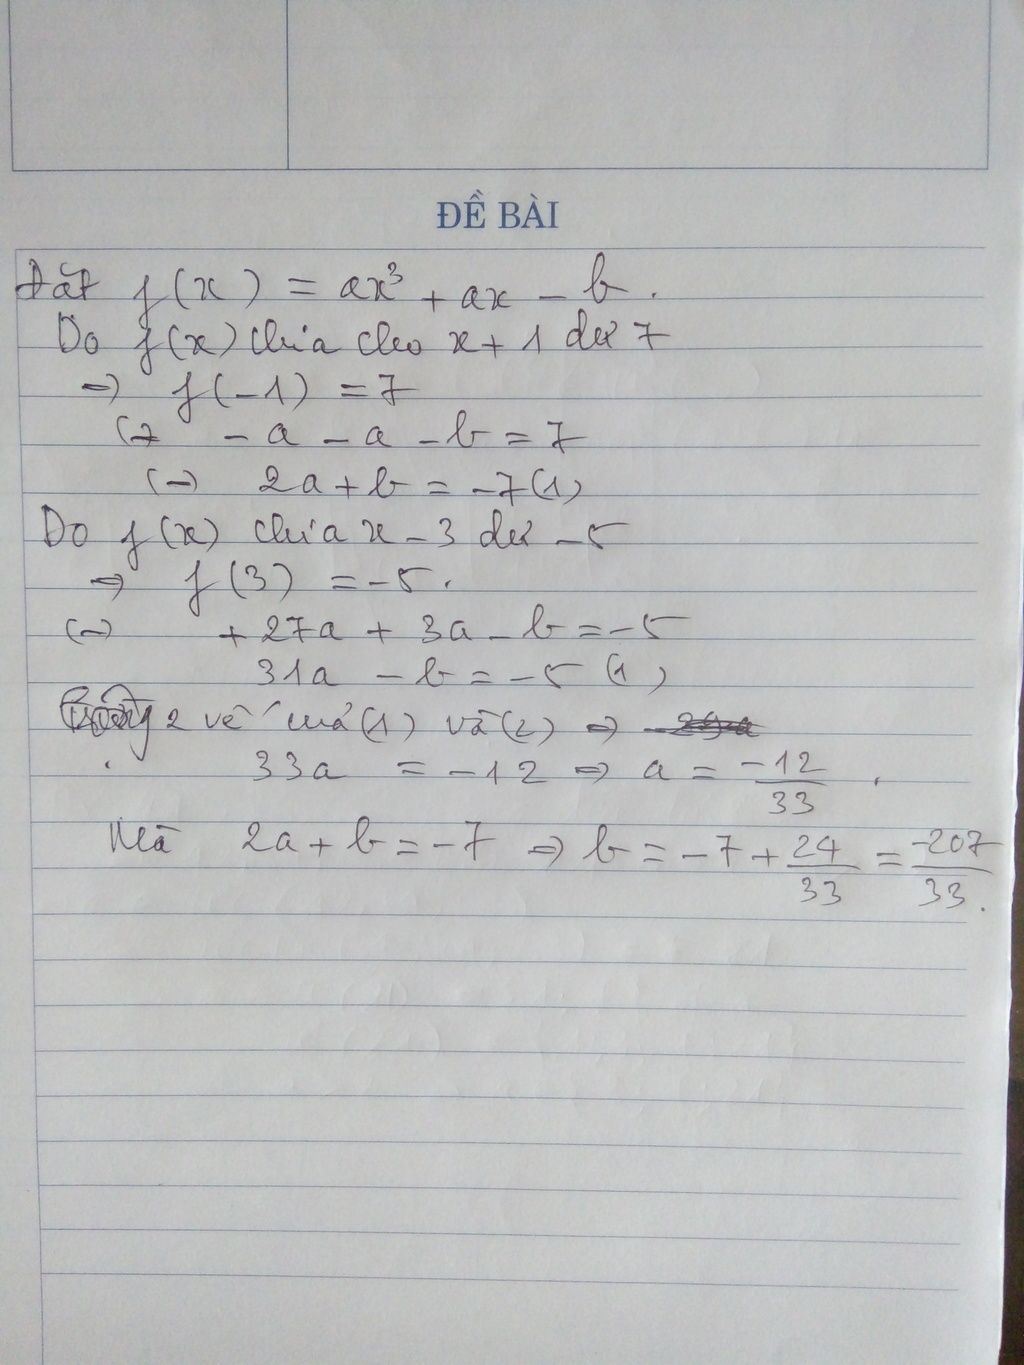 ĐỀ BÀI
Đặt f(x) = ax³ + ax - b.
Do f(x) chia cho x + 1 dư 7
=> f(-1) = 7
(=> - a - a - b = 7
(=> 2a + b = -7 (1)
Do f(x) chia x - 3 dư -5
=> f(3) = -5.
(=> + 27a + 3a - b = -5
31a - b = -5 (1)
2 vế (1) và (2) =>
33a = -12 => a = -12/33.
Mà 2a + b = -7 => b = -7 + 24/33 = -207/33.